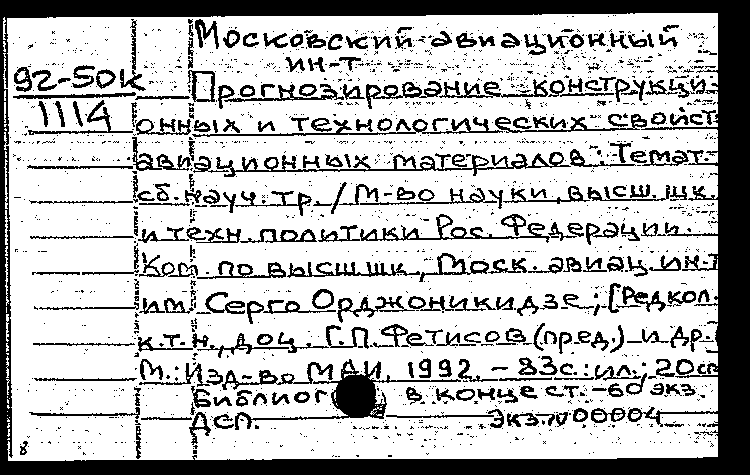 Московский авиационный
ин-т
92-50к
1114
Прогнозирование конструкци-
онных и технологических свойст
авиационных материалов: Темат.
сб. науч. тр. / М-во науки, высш. шк.
и техн. политики Рос. Федерации.
Ком. по высш. шк., Моск. авиац. ин-т
им. Серго Орджоникидзе; [Редкол.
к.т.н., доц. Г.П. Фетисов (пред.) и др.]
М.: Изд-во МАИ, 1992. - 83с.: ил.; 20см
Библиог в конце ст. - 60 экз.
ДСП. Экз. N 00004
8